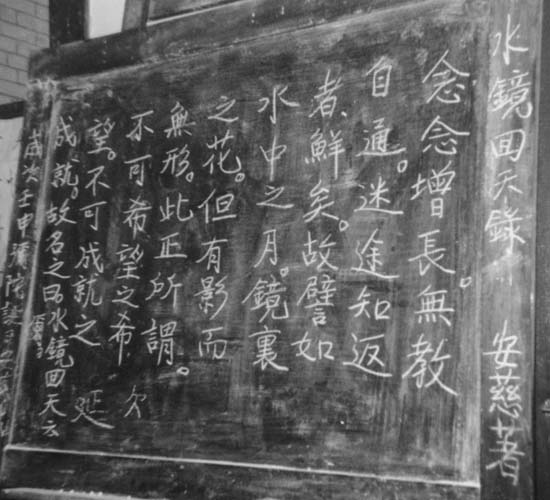 水鏡回天錄 安慈著
念念增長。無教
自通。迷途知返
者、鮮矣。故譬如
水中之月。鏡裏
之花。但有影而
無形。此正所謂。
不可希望之希 欠
望。不可成就之 延
成就。故名之曰水鏡回天云
爾
歲次壬申